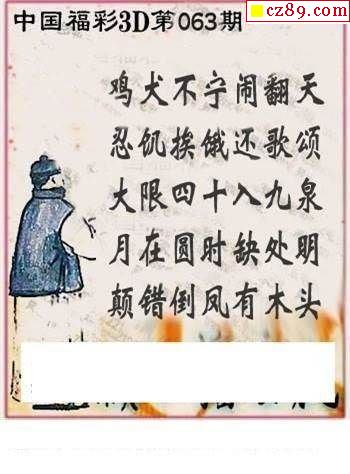 cz89.com
中国福彩3D第063期
鸡犬不宁闹翻天
忍饥挨饿还歌颂
大限四十入九泉
月在圆时缺处明
颠错倒凤有木头